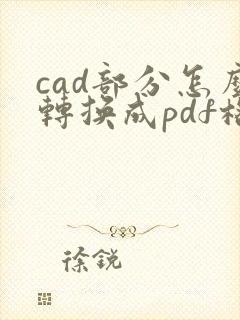 cad部分怎麼
轉換成pdf格
徐銳